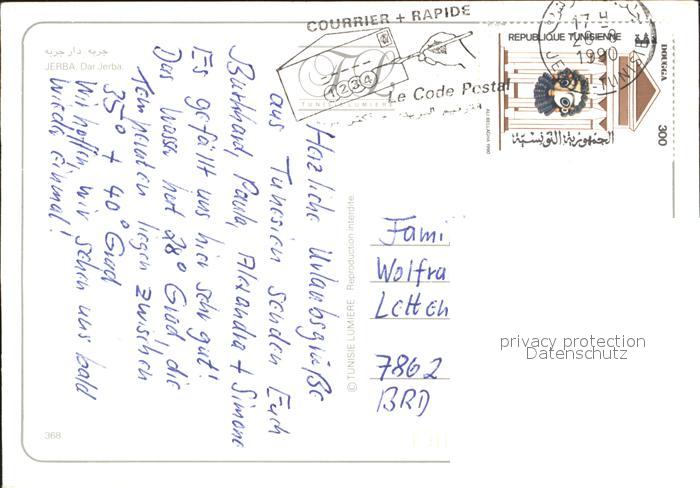 COURRIER + RAPIDE
1234
Le Code Postal
REPUBLIQUE TUNISIENNE
DOUGGA
300
الجمهورية التونسية
17-H
1990
TUNISIE LUMIERE
جربه دار جربه
JERBA. Dar Jerba.
Herzliche Urlaubsgrüße
aus Tunesien senden Euch
Burkhard, Paula, Alexandra + Simone
Es gefällt uns hier sehr gut!
Das Wasser hat 28° Grad die
Temperaturen liegen zwischen
35° + 40° Grad
Wir hoffen wir sehen uns bald
wieder einmal!
© TUNISIE LUMIERE Reproduction interdite
Fami
Wolfra
Letten
7862
BRD
368
privacy protection
Datenschutz